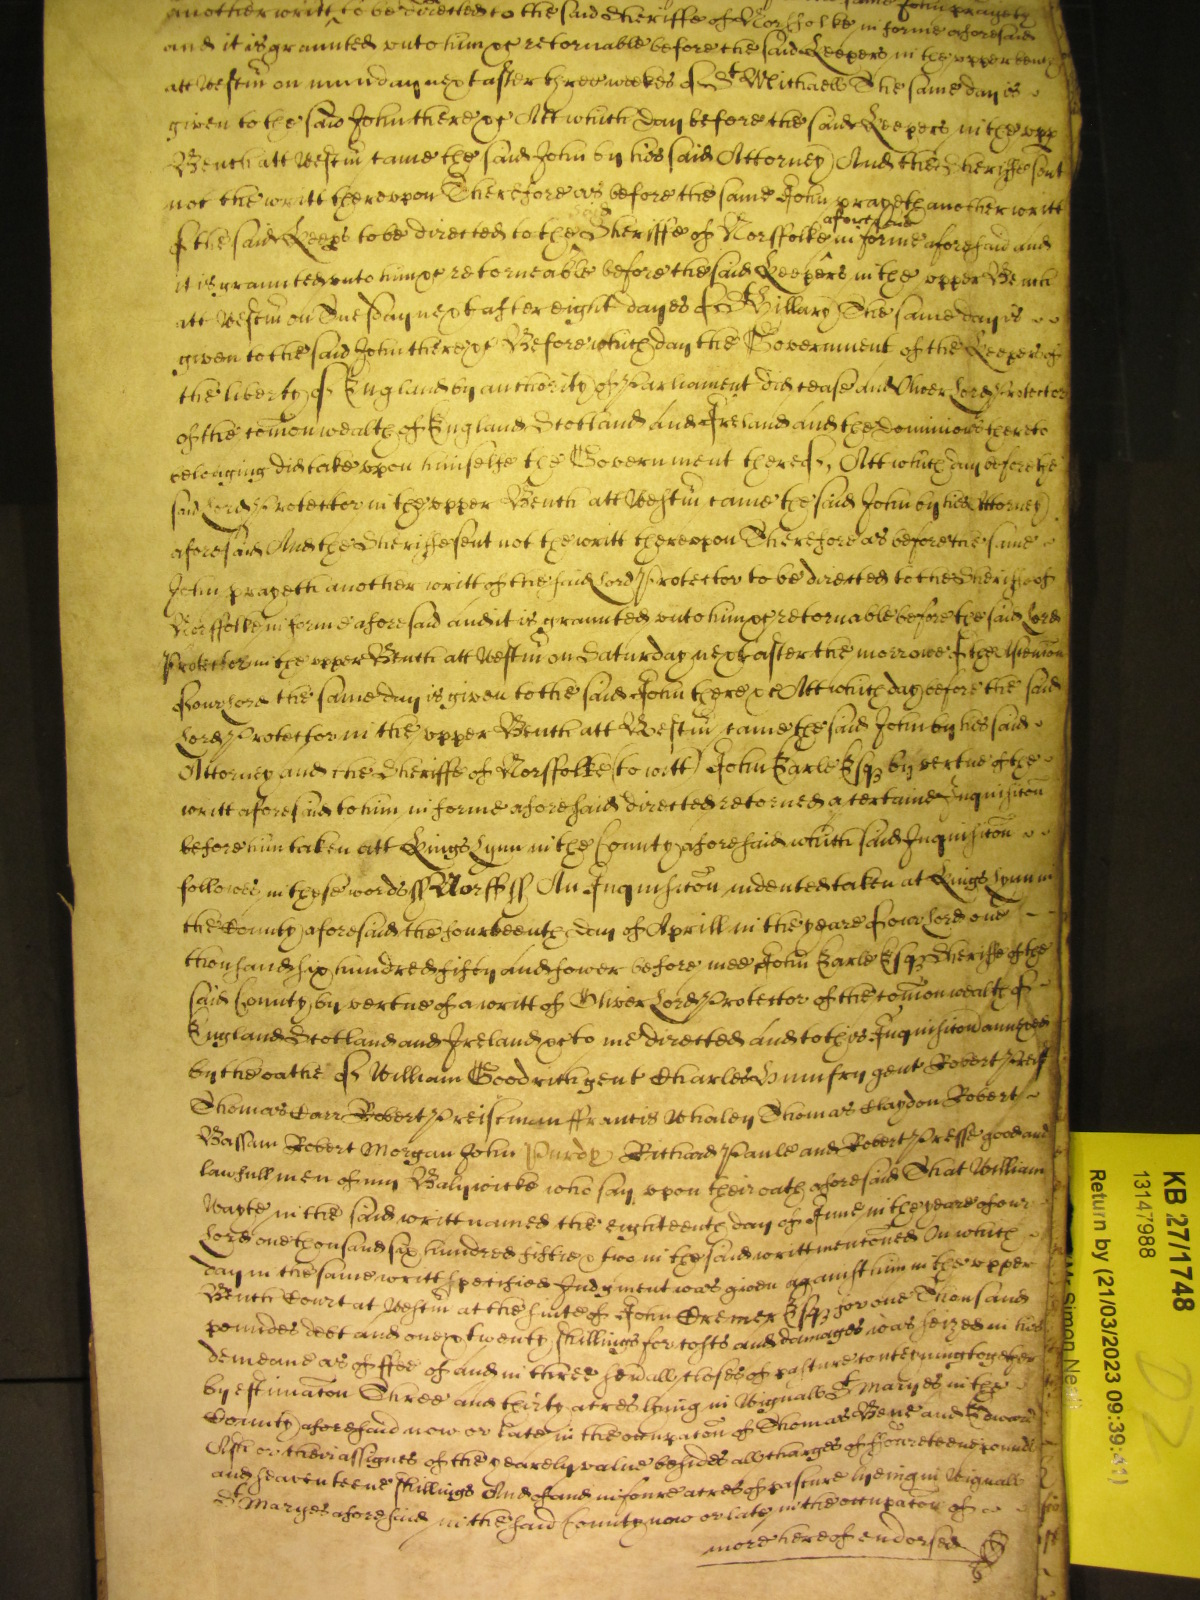 another writt to be directed to the said Sheriffe of Norffolke in forme aforesaid
and it is graunted unto him &c retornable before the said Keepers in the upper bench
att Westm on munday next after three weekes of St Michaell The same day is
given to the said John there &c Att which day before the said Keepers in the upp
Bench att Westm came the said John by his said Attorney And the Sheriffe sent
not the writt thereupon Therefore as before the same John prayeth another writt
of the said Keeps to be directed to the Sheriffe of Norffolke in forme aforesaid and
aforesaid
it is graunted unto him &c retorneable before the said Keepers in the upper Bench
att Westm on Tuesday next after eight dayes of St Hillary The same day is
given to the said John there &c Before which day the Government of the Keepers of
the liberty of England by authority of Parliament did cease and Oliver Lord Protector
of the comon wealth of England Scotland And Ireland and the Dominions thereto
belonging did take upon himselfe the Government thereof, Att which day before the
said Lord Protector in the upper Bench att Westm came the said John by his Attorney
aforesaid And the Sheriffe sent not the writt thereupon Therefore as before the same
John prayeth another writt of the said Lord Protector to be directed to the Sheriffe of
Norffolke in forme aforesaid and it is graunted unto him &c retornable before the said Lord
Protector in the upper Bench att Westm on Saturday next after the morrowe of the Ascencon
of our Lord the same day is given to the said John there &c Att which day before the said
Lord Protector in the upper Bench att Westm came the said John by his said
Attorney and the Sheriffe of Norffolke (to witt) John Earle Esqz by vertue of the
writt aforesaid to him in forme aforesaid directed retorned a certaine Inquisicon
before him taken att Kings Lynn in the County aforesaid which said Inquisicon
followes in these words ss Norff ss An Inquisicon indented taken at Kings Lynn in
the County aforesaid the fourteenth day of Aprill in the yeare of our Lord one
thousand six hundred fifty and fower before mee John Earle Esqz Sheriffe of the
said County by vertue of a writt of Oliver Lord Protector of the comon wealth of
England Scotland and Ireland &c to me directed And to this Inquisicon annexed
by the oathe of William Goodrich gent Charles Humfry gent Robert
Thomas Carr Robert Francis Whaley Thomas Claydon Robert
Bassam Robert Morgan John Purdy Richard Paule and Robert Presse good and
lawfull men of my Balywicke who say upon their oath aforesaid That William
Wayte in the said writt named the eighteenth day of June in the yeare of our
Lord one thousand six hundred fiftie & two in the said writt mentoned On which
day in the same writt specified Judgment was given against him in the upper
Bench Court at Westm at the suite of John Cremer Esqz for one Thousand
poundes debt and one & twenty shillings for costs and damages was seized in his
demeane as of ffee of and in three severall closes of pasture conteyning together
by estimacon Three and thirty acres lying in Wignall St Maryes in the
County aforesaid now or late in the occupacon of Thomas Bene and Edward
Ash or their assignes of the yearely value besides all charges of fourteene pounds
and seaventeene shillings And of and in foure acres of pasture lyeing in Wignall
St Maryes aforesaid in the said County now or late in the occupacon of
more hereof endorsed
KB 27/1748
13147988
Return by (21/03/2023 09:39:41)
Simon Neal
D2